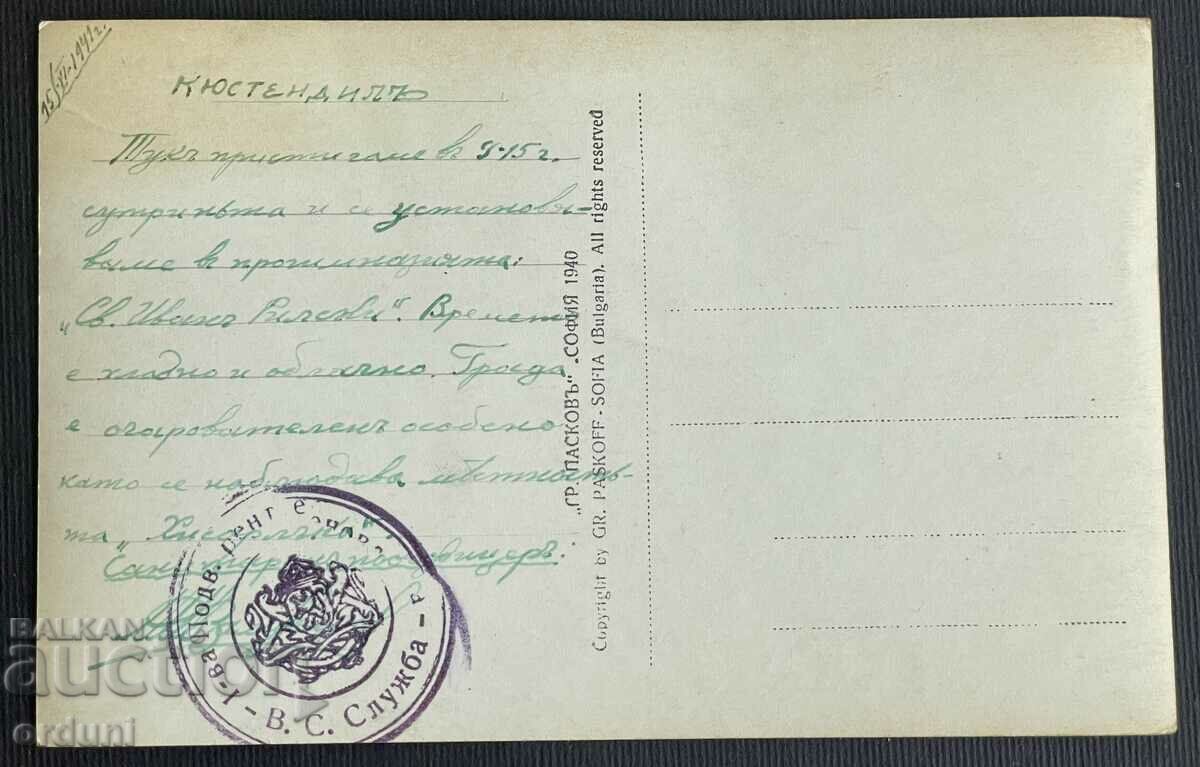 15/VI-1941г.
КЮСТЕНДИЛЪ
Тукъ пристигаме въ 9-15 г.
сутриньта и се установя-
ваме въ прогимназията:
„Св. Иванъ Рилски". Времето
е хладно и облачно. Града
е очарователенъ особено
като се наблюдава мѣстность-
та „Хисарлъка".
Санитаренъ подофицеръ:
К-ва Подв. Ренг
- В. С. Служба -
„ГР. ПАСКОВЪ" - СОФИЯ 1940
Copyright by GR. PASKOFF - SOFIA (Bulgaria). All rights reserved
BALKAN
auction
orduni